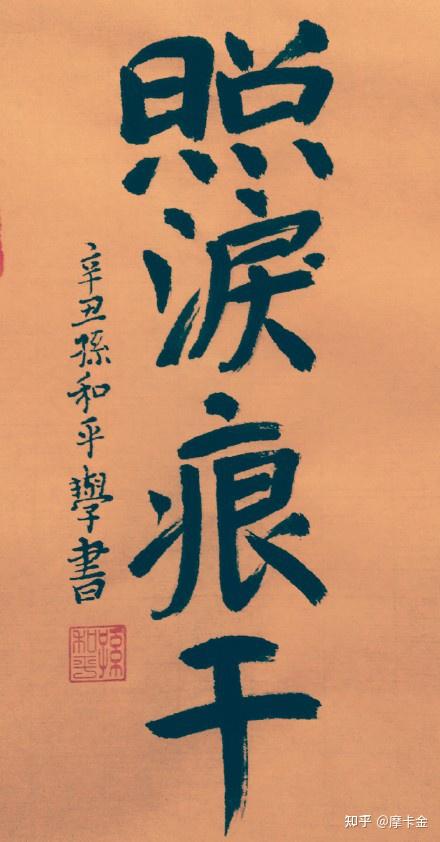 照淚痕干
辛丑孫和平學書
孫和平
知乎 @摩卡金